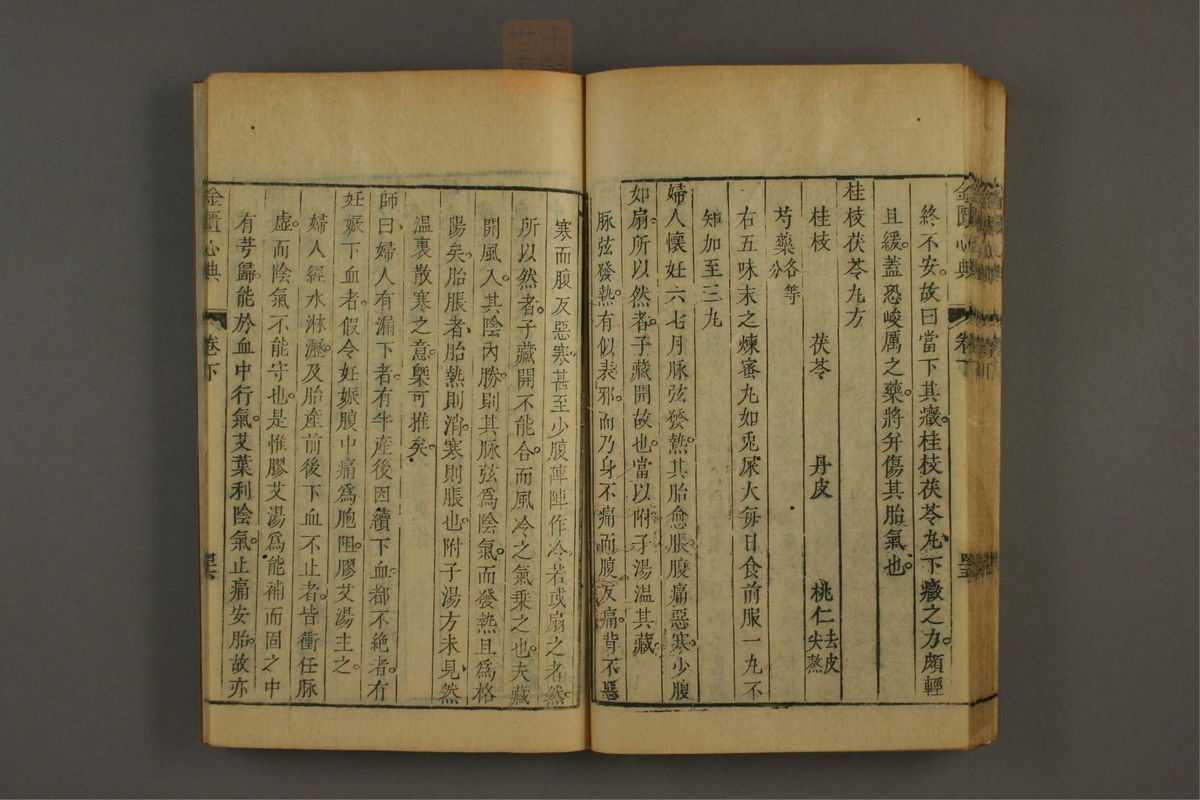 終不安。故曰當下其癥。桂枝茯苓丸、下癥之力頗輕
且緩。蓋恐峻厲之藥。將并傷其胎氣也。
桂枝茯苓丸方
桂枝 茯苓 丹皮 桃仁去皮尖熬
芍藥各等分
右五味末之煉蜜丸如兎屎大每日食前服一丸不
知加至三丸
婦人懷妊六七月脉弦發熱。其胎愈脹。腹痛惡寒。少腹
如扇。所以然者。子藏開故也。當以附子湯溫其藏。
脉弦發熱。有似表邪。而乃身不痛而腹反痛。背不惡
金匱心典 卷下
寒而腹反惡寒。甚至少腹陣陣作冷。若或扇之者然。
所以然者。子藏開不能合。而風冷之氣乘之也。夫藏
開風入。其陰內勝。則其脉弦爲陰氣。而發熱且爲格
陽矣。胎脹者、胎熱則消。寒則脹也。附子湯方未見、然
溫裏散寒之意。槩可推矣。
師曰、婦人有漏下者。有半產後因續下血都不絶者。有
妊娠下血者。假令妊娠腹中痛爲胞阻。膠艾湯主之。
婦人經水淋瀝。及胎產前後下血不止者。皆衝任脉
虛。而陰氣不能守也。是惟膠艾湯爲能補而固之中
有芎歸。能於血中行氣。艾葉利陰氣。止痛安胎。故亦
金匱心典 卷下